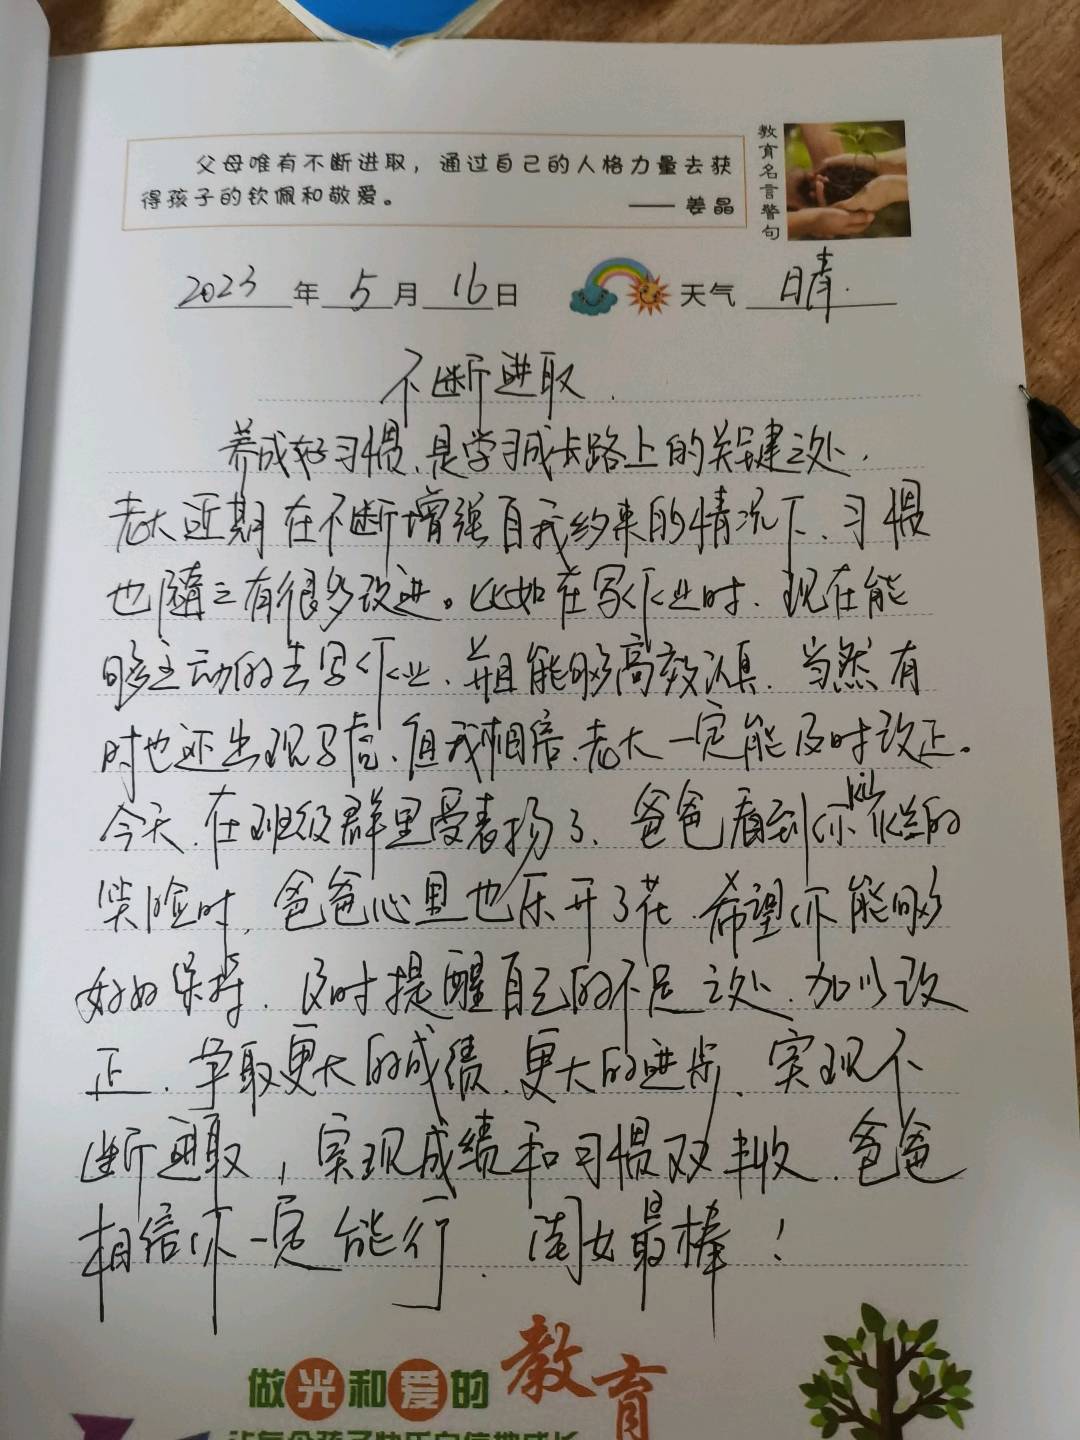 父母唯有不断进取，通过自己的人格力量去获
得孩子的钦佩和敬爱。 —— 姜晶
教育名言警句
2023年5月16日 天气 晴.
不断进取.
养成好习惯、是学习成长路上的关键之处.
老大近期在不断增强自我约束的情况下、习惯
也随之有很多改进。比如在写作业时、现在能
够主动的去写作业、并且能够高效认真. 当然有
时也还出现马虎、但我相信、老大一定能及时改正。
今天、在班级群里受表扬了、爸爸看到你 的
笑脸时, 爸爸心里也乐开了花. 希望你能够
好好保持、及时提醒自己的不足之处、加以改
正、争取更大的成绩、更大的进步、实现不
断进取, 实现成绩和习惯双丰收. 爸爸
相信你一定能行、闺女最棒!
做光和爱的教育
让每个孩子快乐自信地成长